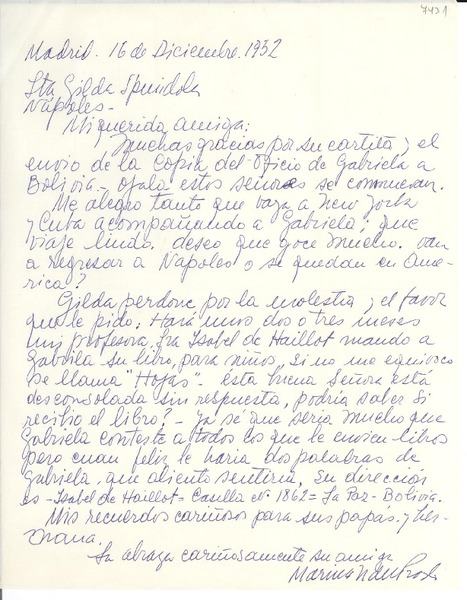 7431
Madrid. 16 de Diciembre. 1952
Sta Gilda
Nápoles-
Mi querida amiga:
Muchas gracias por su cartita, y el
envio de la Copia del oficio de Gabriela a
Bolivia.- ojala estos señores se conmuevan.
Me alegro tanto que vaya a New York
y Cuba acompañando a Gabriela; que
viaje lindo. deseo que goce mucho. van
a regresar a Napoles o se quedan en Ame-
rica?
Gilda perdone por la molestia y el favor
que le pido; Hará unos dos o tres meses
mi profesora. Sra Isabel de Haillot mando a
Gabriela su libro, para niños, si no me equivoco
se llama "Hojas"- ésta buena Señora está
desconsolada sin respuesta, podria saber si
recibio el libro?- Ya sé que seria mucho que
Gabriela conteste a todos los que le envien libros
pero cuan feliz le haria dos palabras de
Gabriela, que aliento sentiria, su direccion
es - Isabel de Haillot = Casilla Nº 1862 = La Paz - Bolivia.
Mis recuerdos cariñosos para sus papás. y her-
mana.
La abraza cariñosamente su amiga
Marina